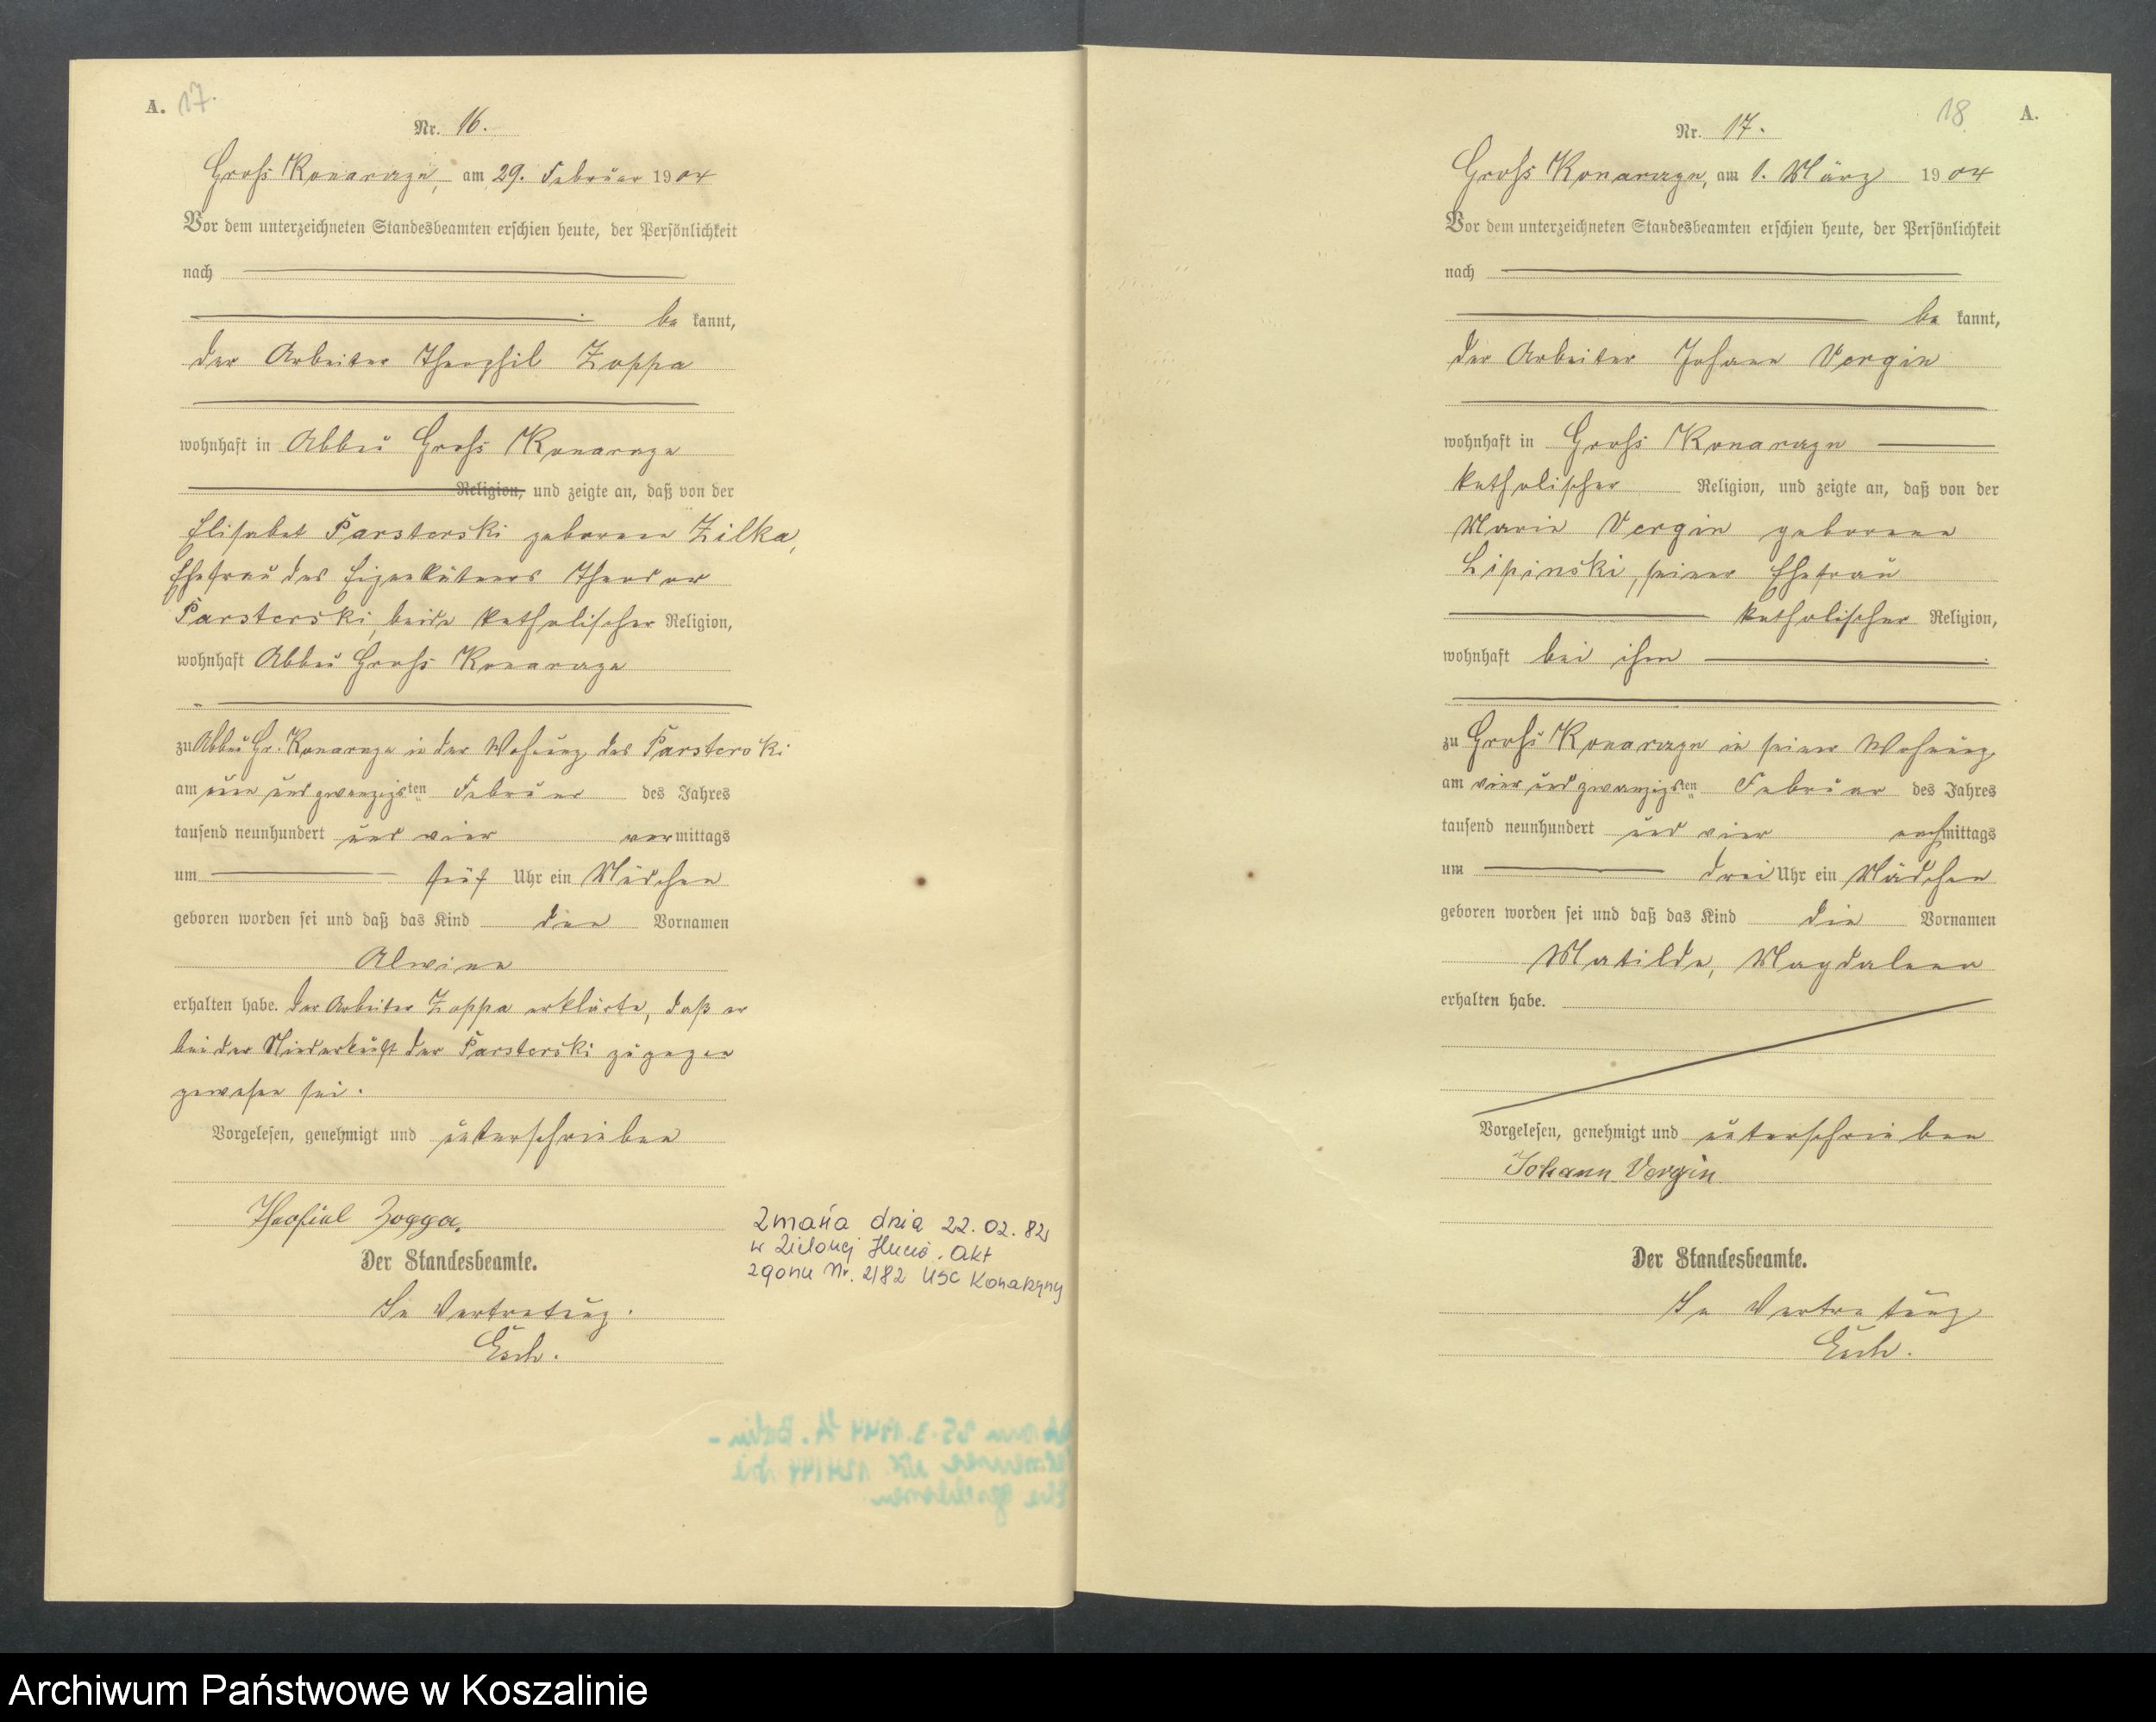 A. 17.
Nr. 16.
Groß Konarczyn, am 29. Februar 1904
Vor dem unterzeichneten Standesbeamten erschien heute, der Persönlichkeit
nach
be kannt,
der Arbeiter Theophil Zoppa
wohnhaft in Abbau Groß Konarczyn
Religion, und zeigte an, daß von der
Elisabet Parsterski geborene Zilka,
Ehefrau des Eigenkätners Theodor
Parsterski, beide katholischer Religion,
wohnhaft Abbau Groß Konarczyn
zu Abbau Gr. Konarczyn in der Wohnung des Parsterski
am neun und zwanzigsten Februar des Jahres
tausend neunhundert und vier vormittags
um fünf Uhr ein Mädchen
geboren worden sei und daß das Kind den Vornamen
Alwine
erhalten habe. Der Arbeiter Zoppa erklärte, daß er
bei der Niederkunft der Parsterski zugegen
gewesen sei.
Vorgelesen, genehmigt und unterschrieben
Zmarła dnia 22.02.82
w Zielonej Hucie. Akt
zgonu Nr. 2/82 USC Konarzyny
Der Standesbeamte.
In Vertretung.
Esch.
18 A.
Nr. 17.
Groß Konarczyn, am 1. März 1904
Vor dem unterzeichneten Standesbeamten erschien heute, der Persönlichkeit
nach
be kannt,
der Arbeiter Johann Vergin
wohnhaft in Groß Konarczyn
katholischer Religion, und zeigte an, daß von der
Marie Vergin geborene
Lipinski, seiner Ehefrau
katholischer Religion,
wohnhaft bei ihm
zu Groß Konarczyn in seiner Wohnung
am vier und zwanzigsten Februar des Jahres
tausend neunhundert und vier nachmittags
um drei Uhr ein Mädchen
geboren worden sei und daß das Kind die Vornamen
Matilde, Magdalena
erhalten habe.
Vorgelesen, genehmigt und unterschrieben
Johann Vergin
Der Standesbeamte.
In Vertretung
Esch.
Archiwum Państwowe w Koszalinie